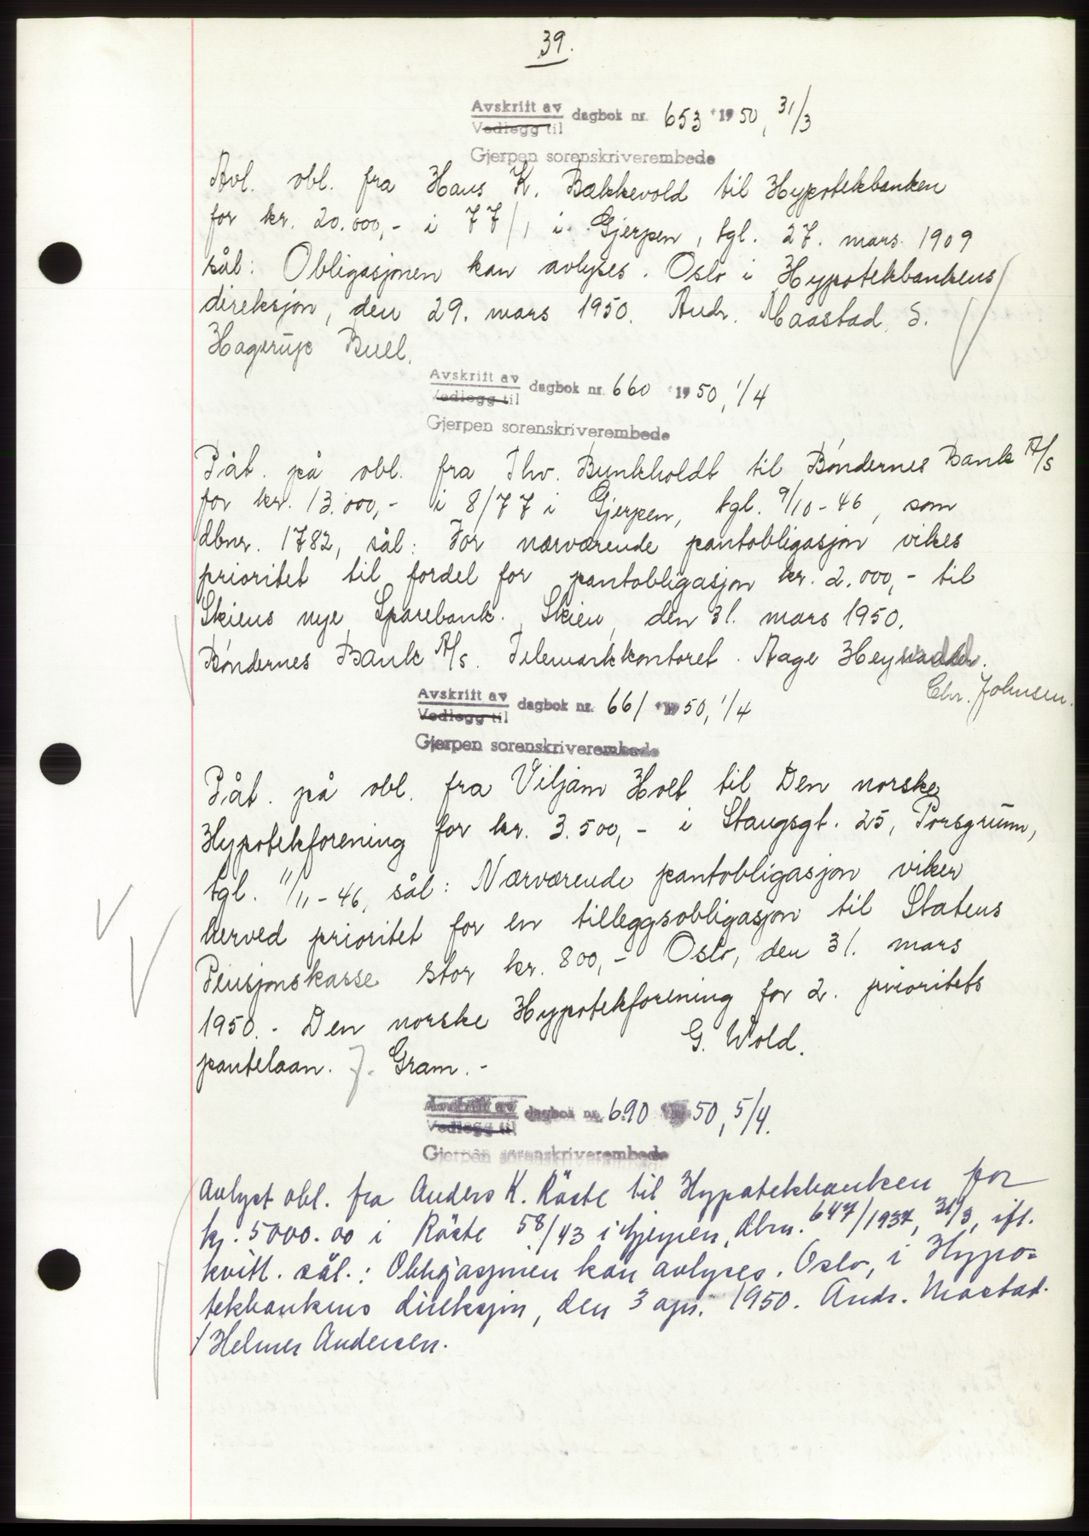 39.
Avskrift av
Vedlegg til dagbok nr. 653 1950, 31/3
Gjerpen sorenskriverembede
Avl. obl. fra Hans K. Bækkevold til Hypotekbanken
for kr. 20.000,- i 77/1 i Gjerpen, tgl. 27. mars 1909
sål: Obligasjonen kan avlyses. Oslo i Hypotekbankens
direksjon, den 29. mars 1950. Andr. Maastad. S.
Hagerup Bull.
Avskrift av
Vedlegg til dagbok nr. 660 1950, 1/4
Gjerpen sorenskriverembede
Påt. på obl. fra Thv. Bunkholdt til Bøndernes Bank A/S
for kr. 13.000,- i 8/77 i Gjerpen, tgl. 9/10-46, som
dbnr. 1782, sål: For nærværende pantobligasjon vikes
prioritet til fordel for pantobligasjon kr. 2.000,- til
Skiens nye Sparebank. Skien, den 31. mars 1950.
Bøndernes Bank A/S. Telemarkkontoret. Aage
Chr. Johnsen.
Avskrift av
Vedlegg til dagbok nr. 661 1950, 1/4
Gjerpen sorenskriverembede
Påt. på obl. fra Viljam Holt til Den norske
Hypotekforening for kr. 3.500,- i Stangsgt. 25, Porsgrunn,
tgl. 11/11-46, sål: Nærværende pantobligasjon viker
herved prioritet for en tilleggsobligasjon til Statens
Pensjonskasse stor kr. 800,- Oslo, den 31. mars
1950.- Den norske Hypotekforening for 2. prioritets
pantelaan. J. Gram.- G. Wold.
Avskrift av
Vedlegg til dagbok nr. 690 1950, 5/4.
Gjerpen sorenskriverembede
Avlyst obl. fra Anders K. Råste til Hypotekbanken for
kr. 5000.00 i Råste 58/43 i Gjerpen, dbnr. 647/1937, 31/3, ifl.
kvitt. sål.: Obligasjonen kan avlyses. Oslo, i Hypo=
tekbankens direksjon, den 3 apr. 1950. Andr. Mastad.
/Helmer Andersen.